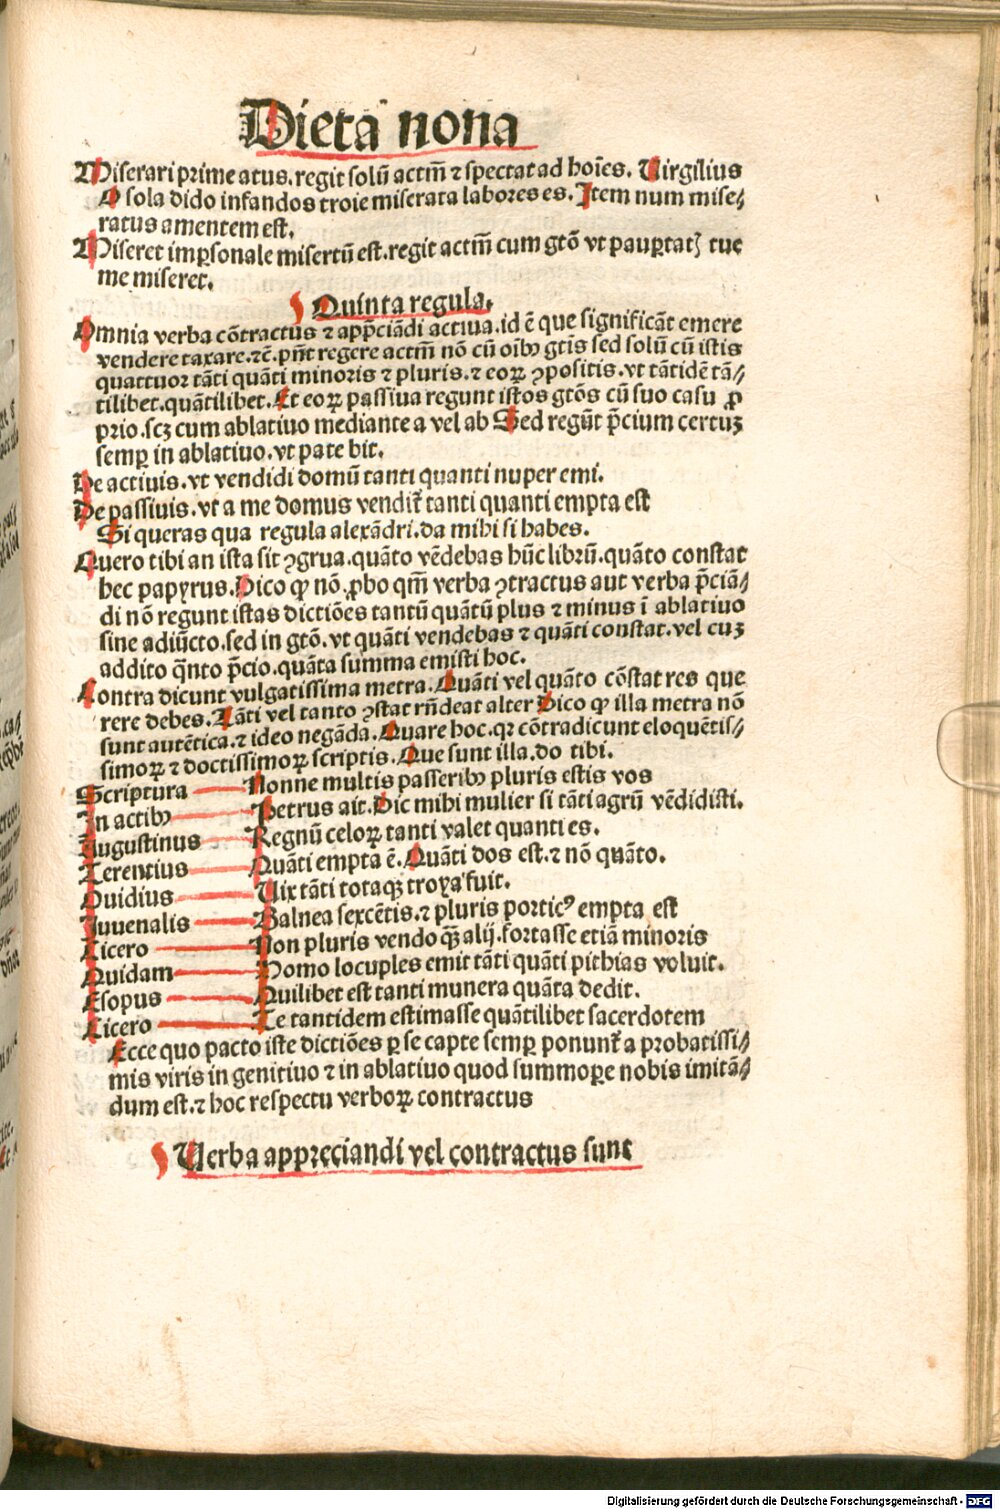 Dieta nona
Miserari prime atus.regit solū actm̄ ⁊ spectat ad hoīes. Virgilius
O sola dido infandos troie miserata labores es. Item num mise⸗
ratus amentem est.
Miseret imꝑsonale misertū est.regit actm̄ cum gtō vt pauꝑtatꝫ tue
me miseret.
Quinta regula.
Omnia verba cōtractus ⁊ app̄ciādi actiua.id ē que significāt emere
vendere taxare.⁊c̄.pn̄t regere actm̄ nō cū oībꝰ gtis sed solū cū istis
quattuor tāti quāti minoris ⁊ pluris.⁊ eoꝝ ꝯpositis.vt tātidē tā⸗
tilibet.quātilibet.Et eoꝝ passiua regunt istos gtōs cū suo casu ꝓ
prio.scꝫ cum ablatiuo mediante a vel ab Sed regūt p̄cium certuꝫ
semꝑ in ablatiuo.vt pate bit.
De actiuis.vt vendidi domū tanti quanti nuper emi.
De passiuis.vt a me domus vendit̄ tanti quanti empta est
Si queras qua regula alexādri.da mihi si habes.
Quero tibi an ista sit ꝯgrua.quāto vēdebas hūc librū.quāto constat
hec papyrus.Dico ꝙ nō.ꝓbo qm̄ verba ꝯtractus aut verba p̄ciā⸗
di nō regunt istas dictiōes tantū quātū plus ⁊ minus ī ablatiuo
sine adiūcto.sed in gtō.vt quāti vendebas ⁊ quāti constat.vel cuꝫ
addito q̄nto p̄cio.quāta summa emisti hoc.
Contra dicunt vulgatissima metra.Quāti vel quāto cōstat res que
rere debes.Tāti vel tanto ꝯstat rn̄deat alter Dico ꝙ illa metra nō
sunt autētica.⁊ ideo negāda.Quare hoc.qꝛ cōtradicunt eloquētis⸗
simoꝝ ⁊ doctissimoꝝ scriptis.Que sunt illa.do tibi.
Scriptura Nonne multis passeribꝰ pluris estis vos
In actibꝰ Petrus ait.Dic mihi mulier si tāti agrū vēdidisti.
Augustinus Regnū celoꝝ tanti valet quanti es.
Terentius Quāti empta ē.Quāti dos est.⁊ nō quāto.
Ouidius Vix tāti totaqꝫ troya fuit.
Juuenalis Balnea sexcētis.⁊ pluris porticꝰ empta est
Cicero Non pluris vendo qꝫ̄ alij.fortasse etiā minoris
Quidam Homo locuples emit tāti quāti pithias voluit.
Esopus Quilibet est tanti munera quāta dedit.
Cicero Te tantidem estimasse quātilibet sacerdotem
Ecce quo pacto iste dictiōes ꝑ se capte semꝑ ponunt̄ a probatissi⸗
mis viris in genitiuo ⁊ in ablatiuo quod summoꝑe nobis imitā⸗
dum est.⁊ hoc respectu verboꝝ contractus
Verba appreciandi vel contractus sunt
Digitalisierung gefördert durch die Deutsche Forschungsgemeinschaft - DFG